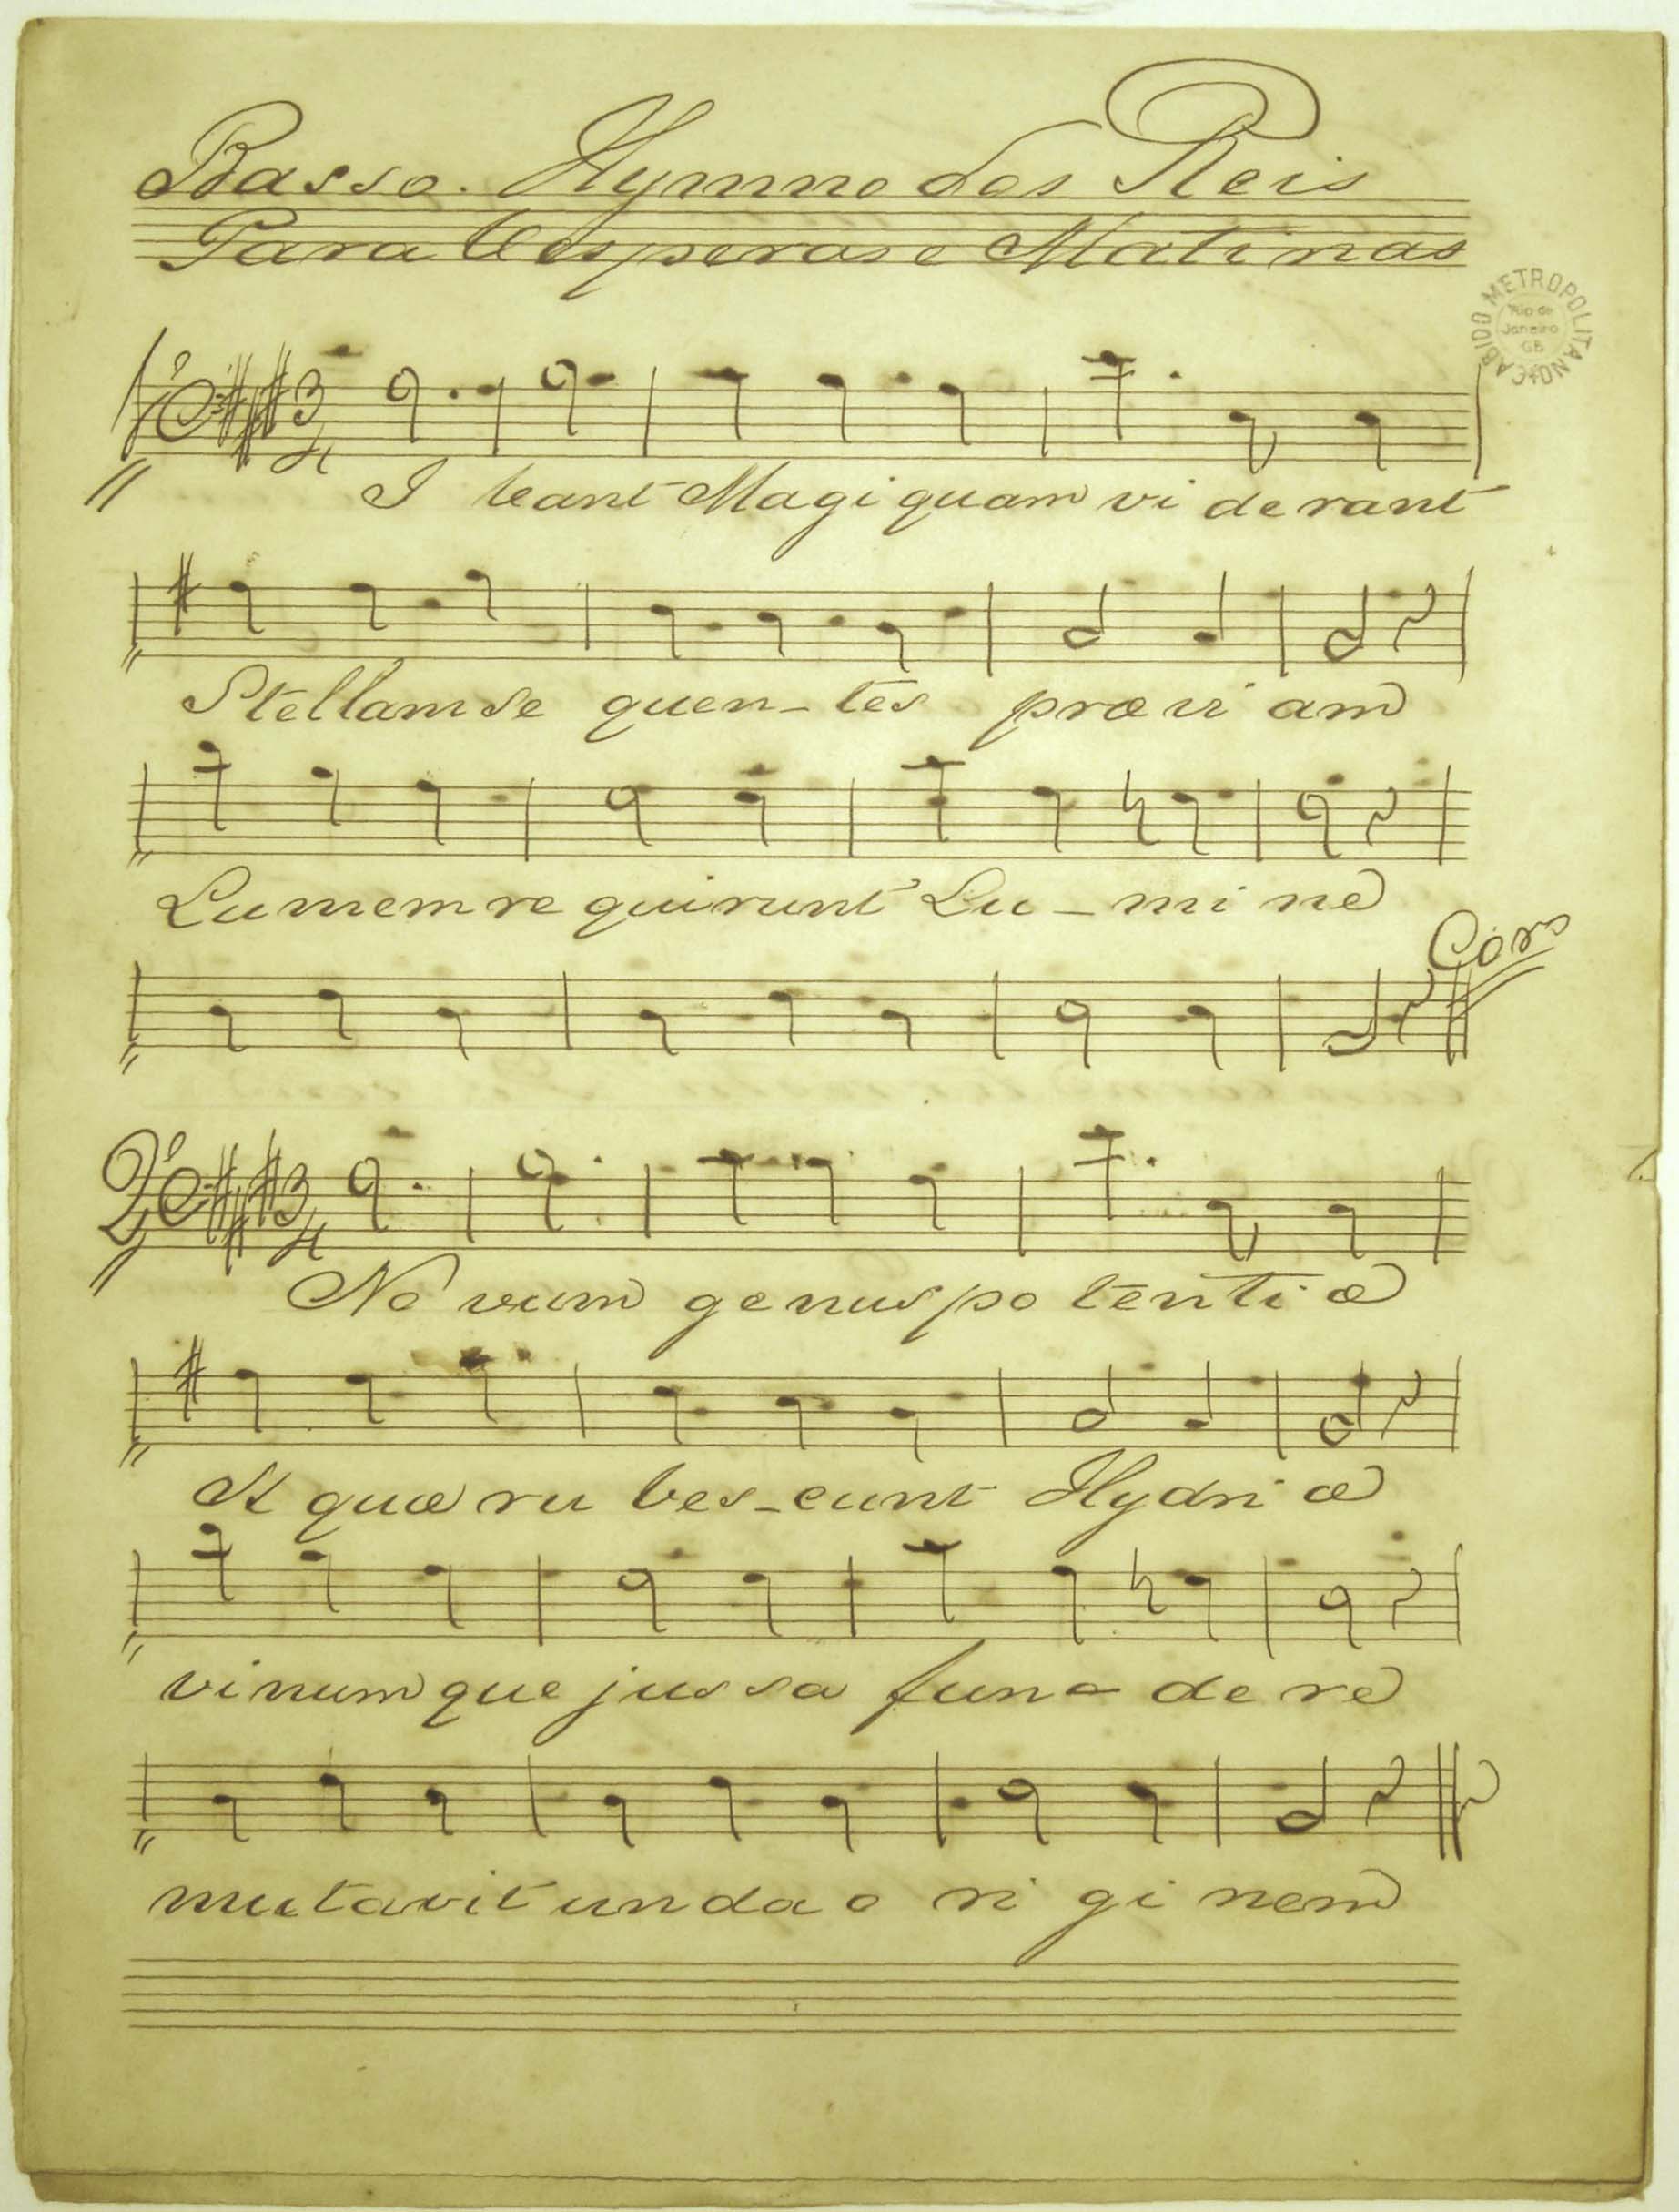 Basso. Hymno dos Reis
Para Vesperas e Matinas
CABIDO METROPOLITANO
Rio de
Janeiro
GB
1º 3 4
I bant Magi quam vi de rant
Stellam se quen - tes præ vi am
Lumem re quirunt Lu - mi ne
Coro
2º 3 4
No vum genus po tenti æ
A quæ ru bes - cunt Hydri æ
vinum que jussa fun - de re
mutavit unda o ri gi nem